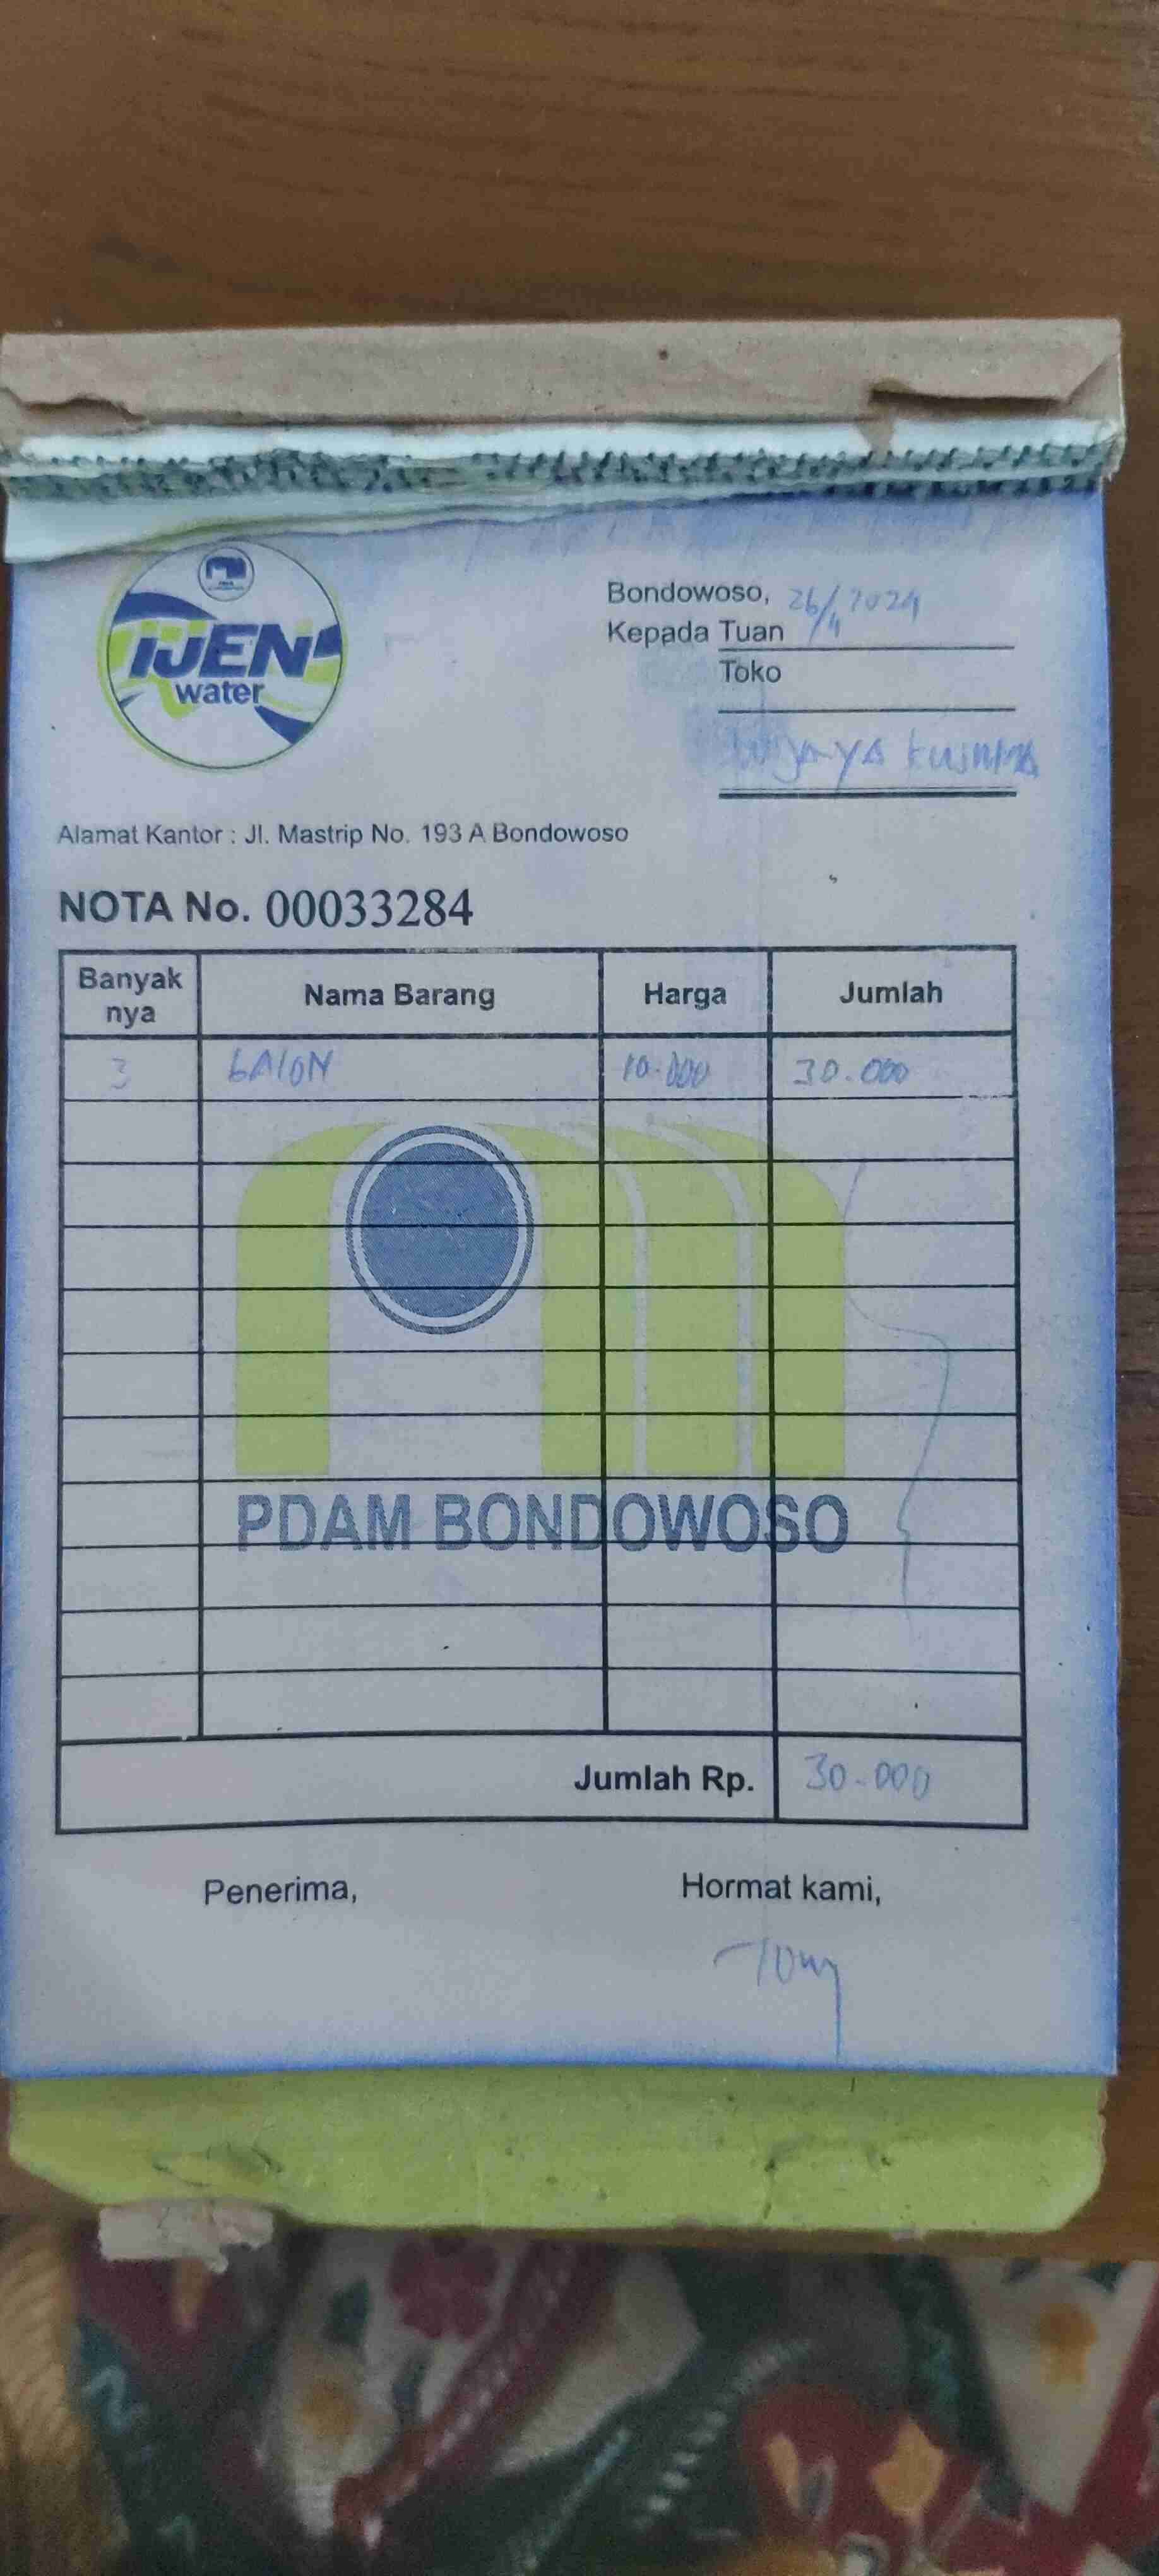 IJEN
water
Bondowoso, 26/4 2024
Kepada Tuan
Toko
Wijaya kusuma
Alamat Kantor : Jl. Mastrip No. 193 A Bondowoso
NOTA No. 00033284
Banyak nya Nama Barang Harga Jumlah
3 GAlON 10.000 30.000
PDAM BONDOWOSO
Jumlah Rp. 30.000
Penerima, Hormat kami,
Tony